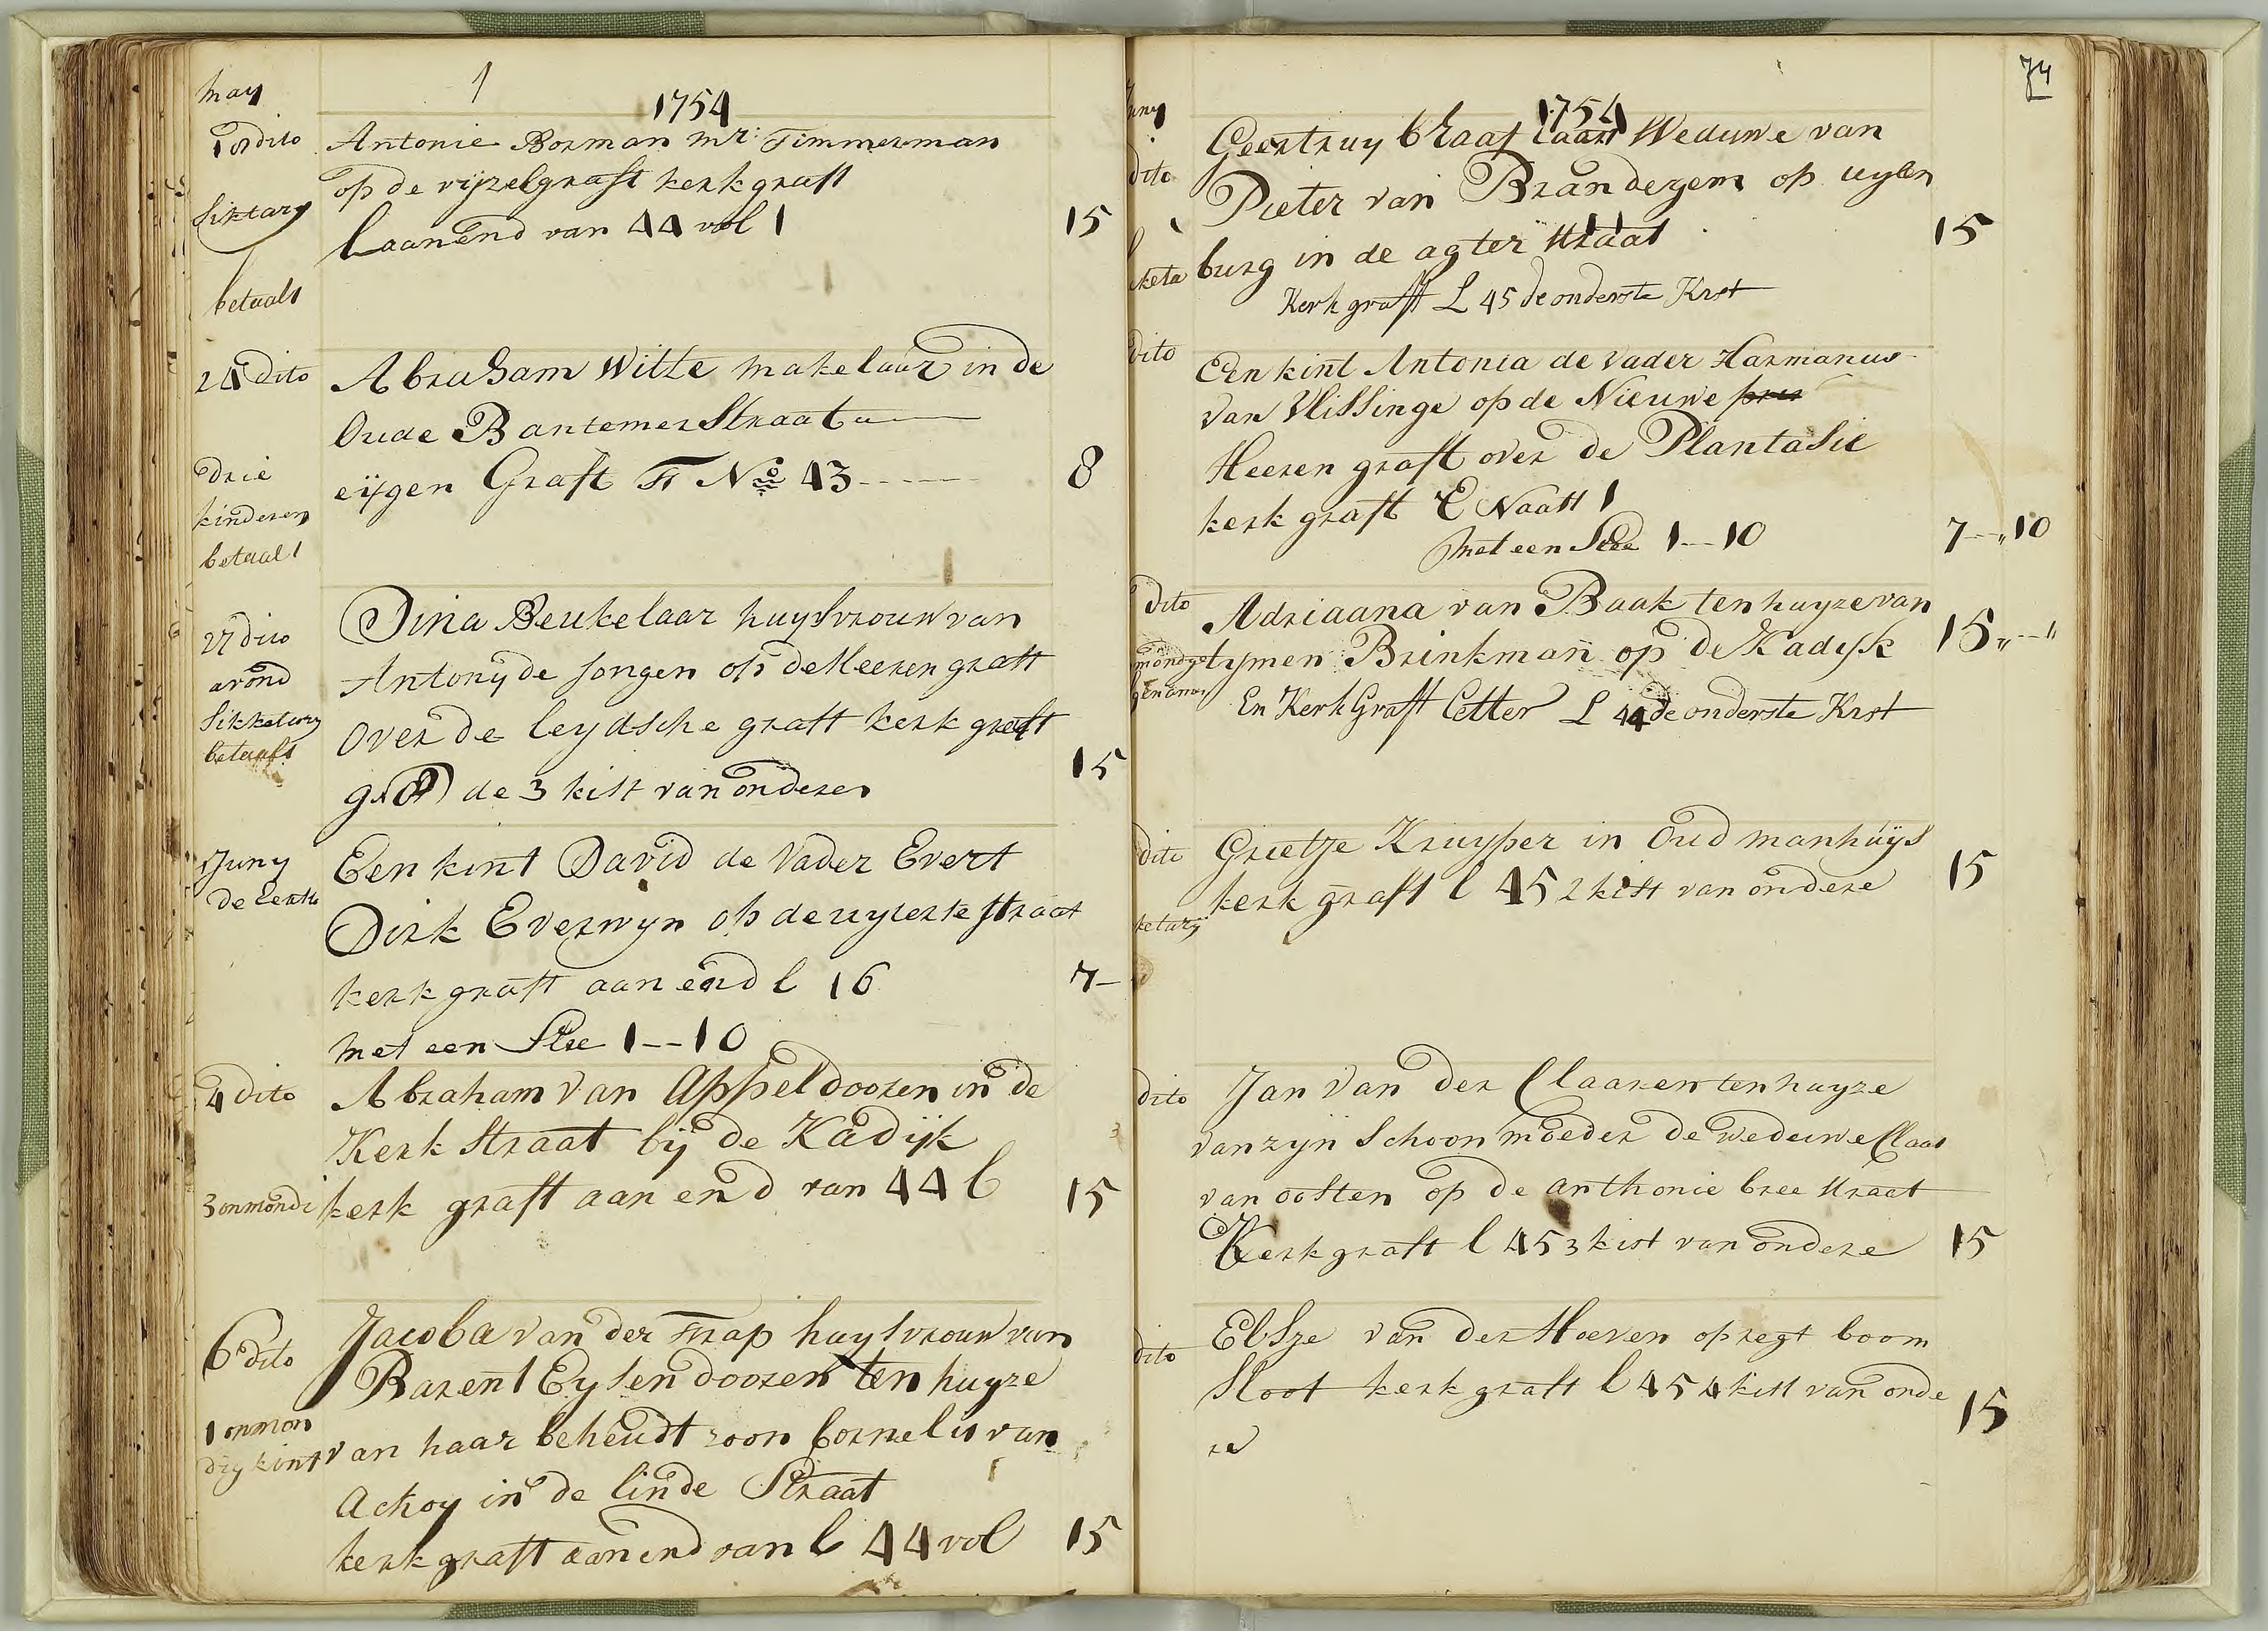 may
1
1754
dito Antonie Bosman mr: Timmerman
op de vijzelgraft kerk graft
Siktary
l aan end van 44 vol 1 15
betaalt
24 dito Abraham Witte makelaar in de
Oude Bantemer Straat
drie eijgen Graft F No 43 8
kinderen
betaalt
27 dito Dina Beukelaar huysvrouw van
avond Antony de Jongen op de Heeren graft
Sikketary over de leydsche graft kerk graft
betaalt 15
de 3 kist van onderen
1 Juny Een kint David de Vader Evert
de eerste Dirk Everwyn op de uyterte straat
kerk graft aan end l 16 7
met een Slee 1--10
4 dito Abraham van Appeldooren in de
Kerk Straat bij de Kadijk
3 onmondi kerk graft aan end van 44 l 15
6 dito Jacoba van der Trap huysvrouw van
Barent Eysendooren ten huyze
1 onmon
dig kint van haar beheudt zoon Cornelis van
Ackoy in de linde Straat
kerk graft aan end van l 44 vol 15
74
Juny
1754
Geertruy Weduwe van
dito Pieter van Branderyem op uylen
burg in de agter straat 15
Kerk graft L 45 de onderste Kist
dito Een kint Antonia de vader Harmanus
van Vlissinge op de Nieuwe
Heeren graft over de Plantasie
kerk graft E Naast 1
met een Slee 1--10 7--10
dito Adriaana van Baak ten huyze van
tymen Brinkman op de Kadijk 15
En Kerk Graft Letter L 44 de onderste Kist
dito Grietje Kruyper in Oud manhuys
kerk graft l 45 2 kist van ondere 15
ketary
dito Jan van der Claaren ten huyze
van zyn Schoon moeder de weduwe Claas
van oosten op de anthonie bree straat
Kerk graft l 45 3 kist van ondere 15
dito Elsje van der Hoeven op regt boom
Sloot kerk graft l 45 4 kist van onde 15
re